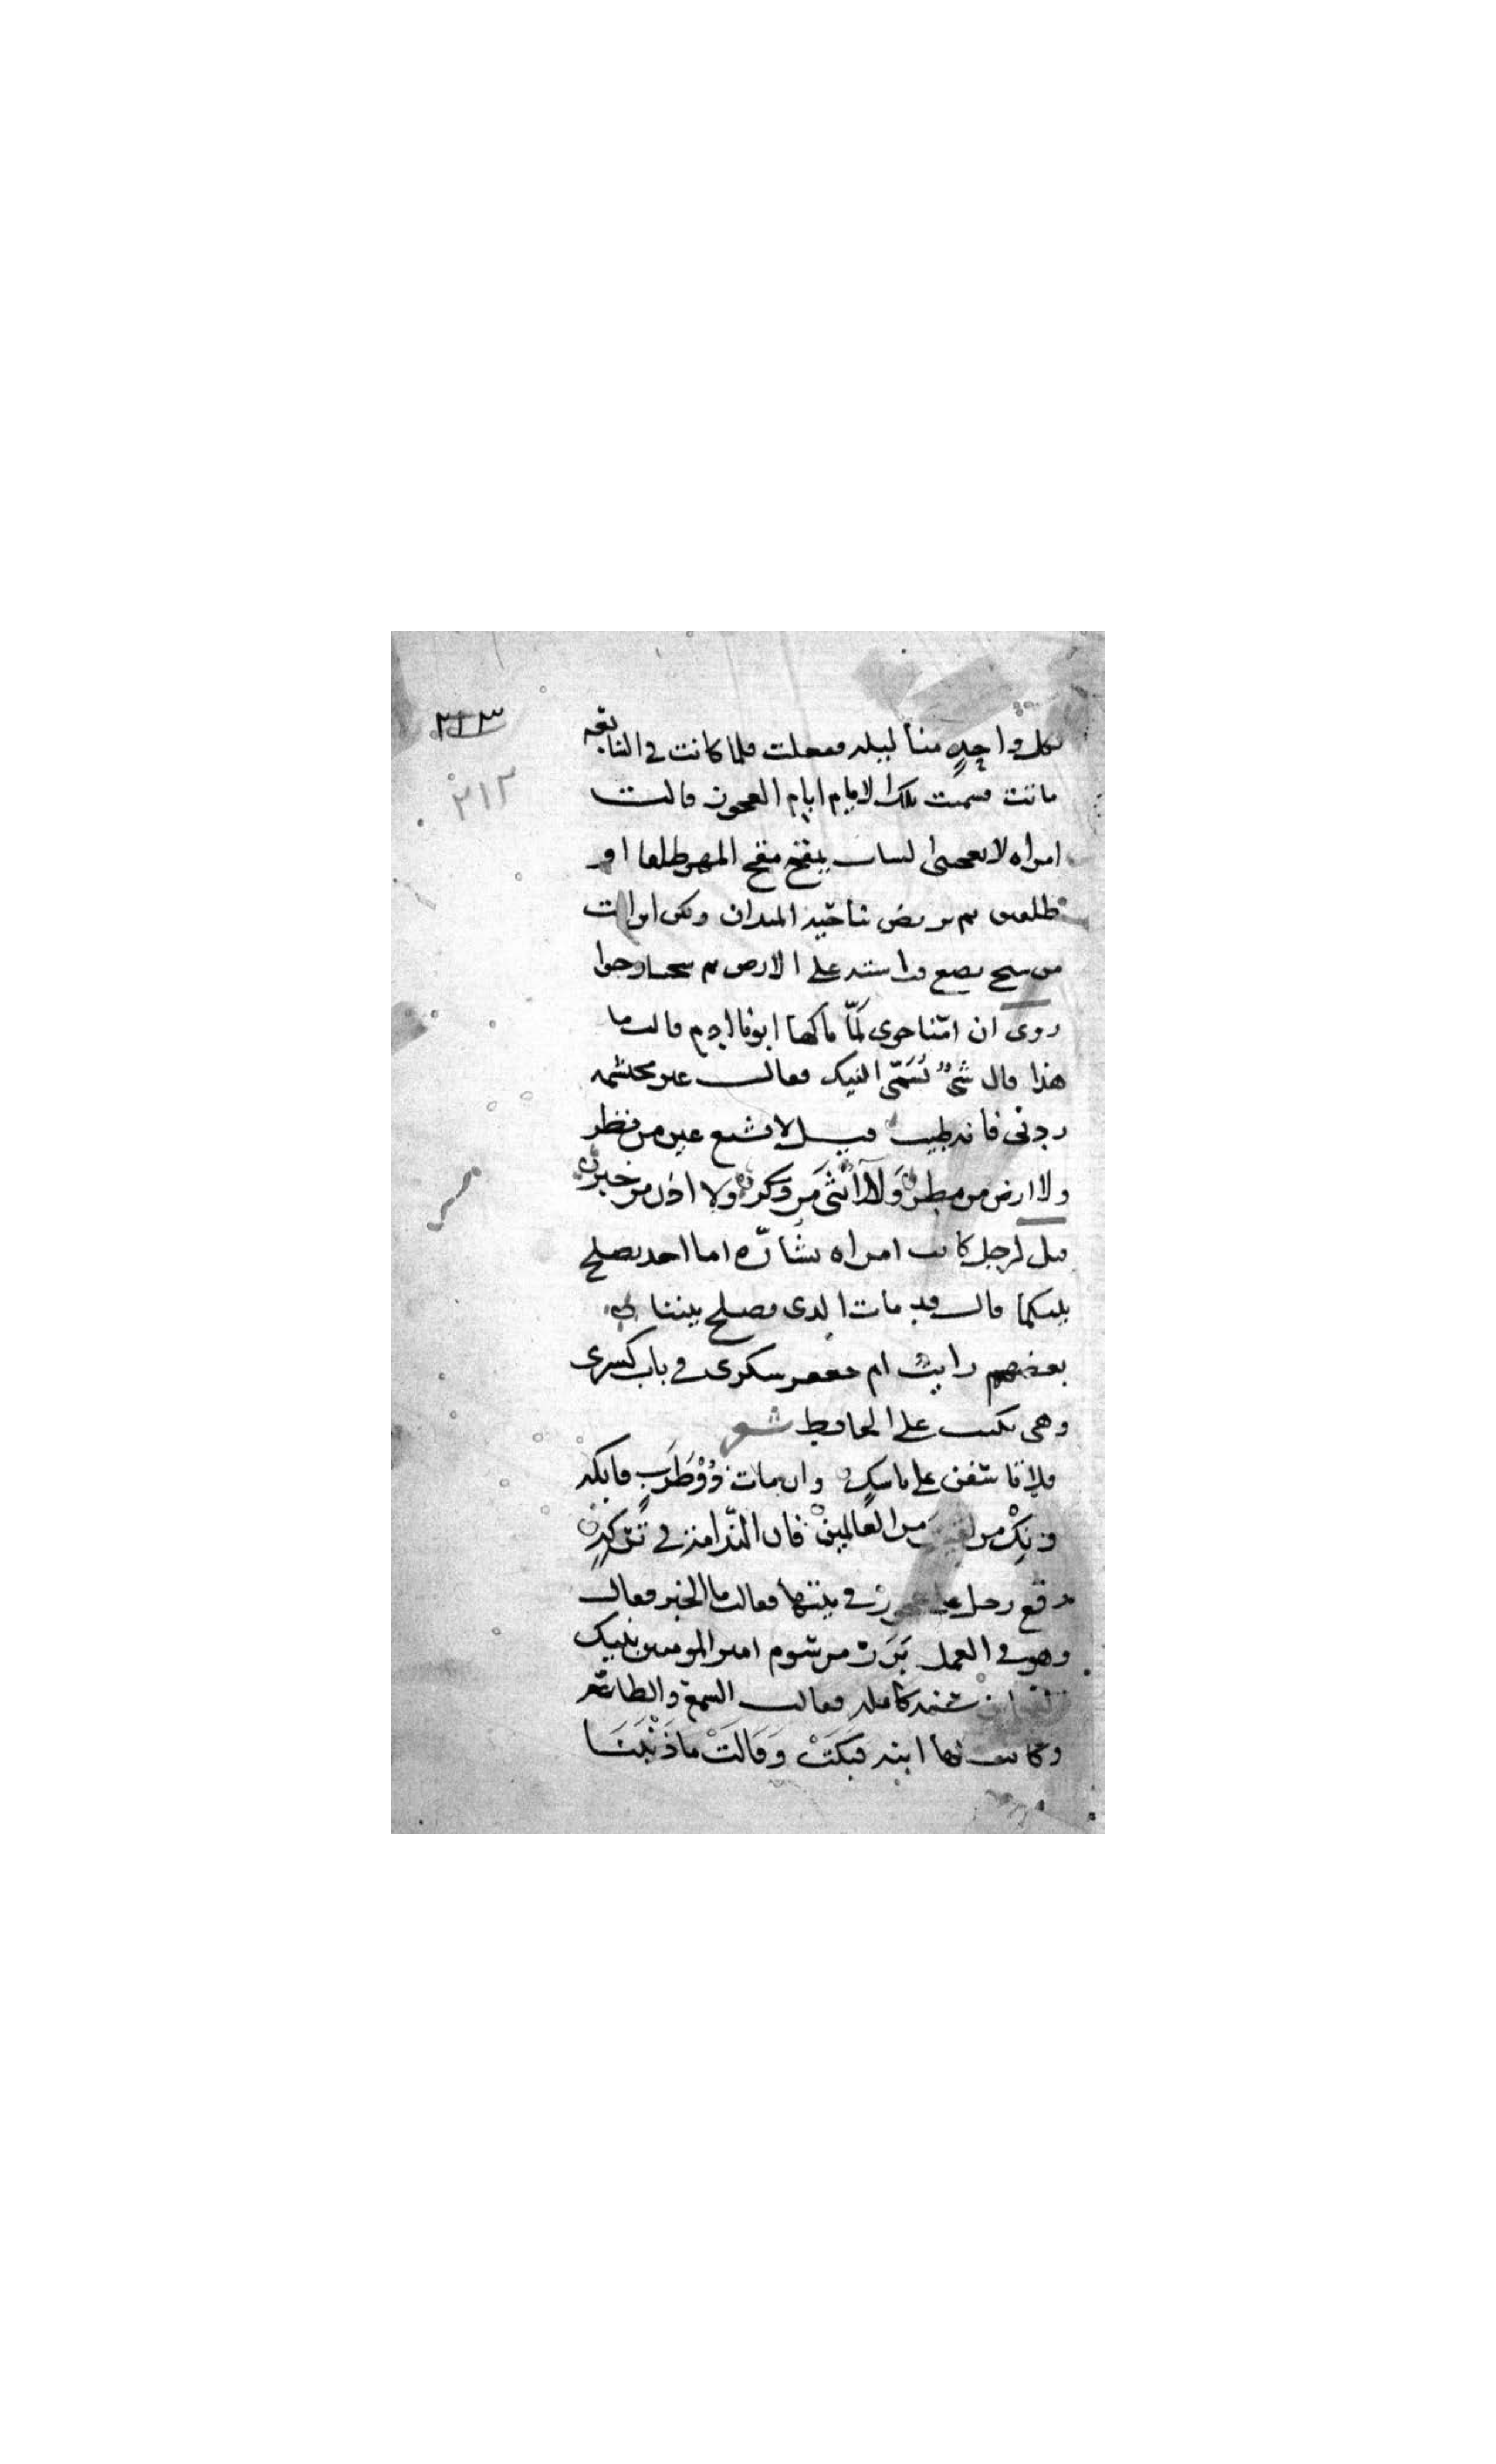 ٢١٣
٢١٢
لكل واحد منا ليله ففعلت فلما كانت في السابعه
ماتت فسميت تلك الايام ايام العجوز قالت
امراه لا يعجبني الساب ينفخ نفخ المهر
ثم يربض ناحيه الميدان ولكن
من يضع استه على الارض ثم
روى ان امنا حوى لما ناكها ابونا ادم قالت ما
هذا قال شيء يسمى النيك فقالت
زدني فانه طيب قيل لا تشبع عين من نظر
ولا ارض من مطر ولا انثى من ذكر ولا اذن من خبر
قيل لرجل كانت امراه تشاره اما احد يصلح
بينكما قال قد مات الذي يصلح بيننا
بعضهم رايت ام جعفر سكرى في باب كسرى
وهي تكتب على الحايط شعر
فلا تاسفن على ناسك وان مات ذو طرب فابكه
ونك من لقيت من العالمين فان الندامه في تركه
وقع رجل على عجوز في بيتها فقالت ما الخبر فقال
وهو في العمل مرسوم امير المومنين بنيك
العجايز سنه كامله فقالت السمع والطاعه
وكانت لها ابنه فبكت وقالت ما ذنبنا